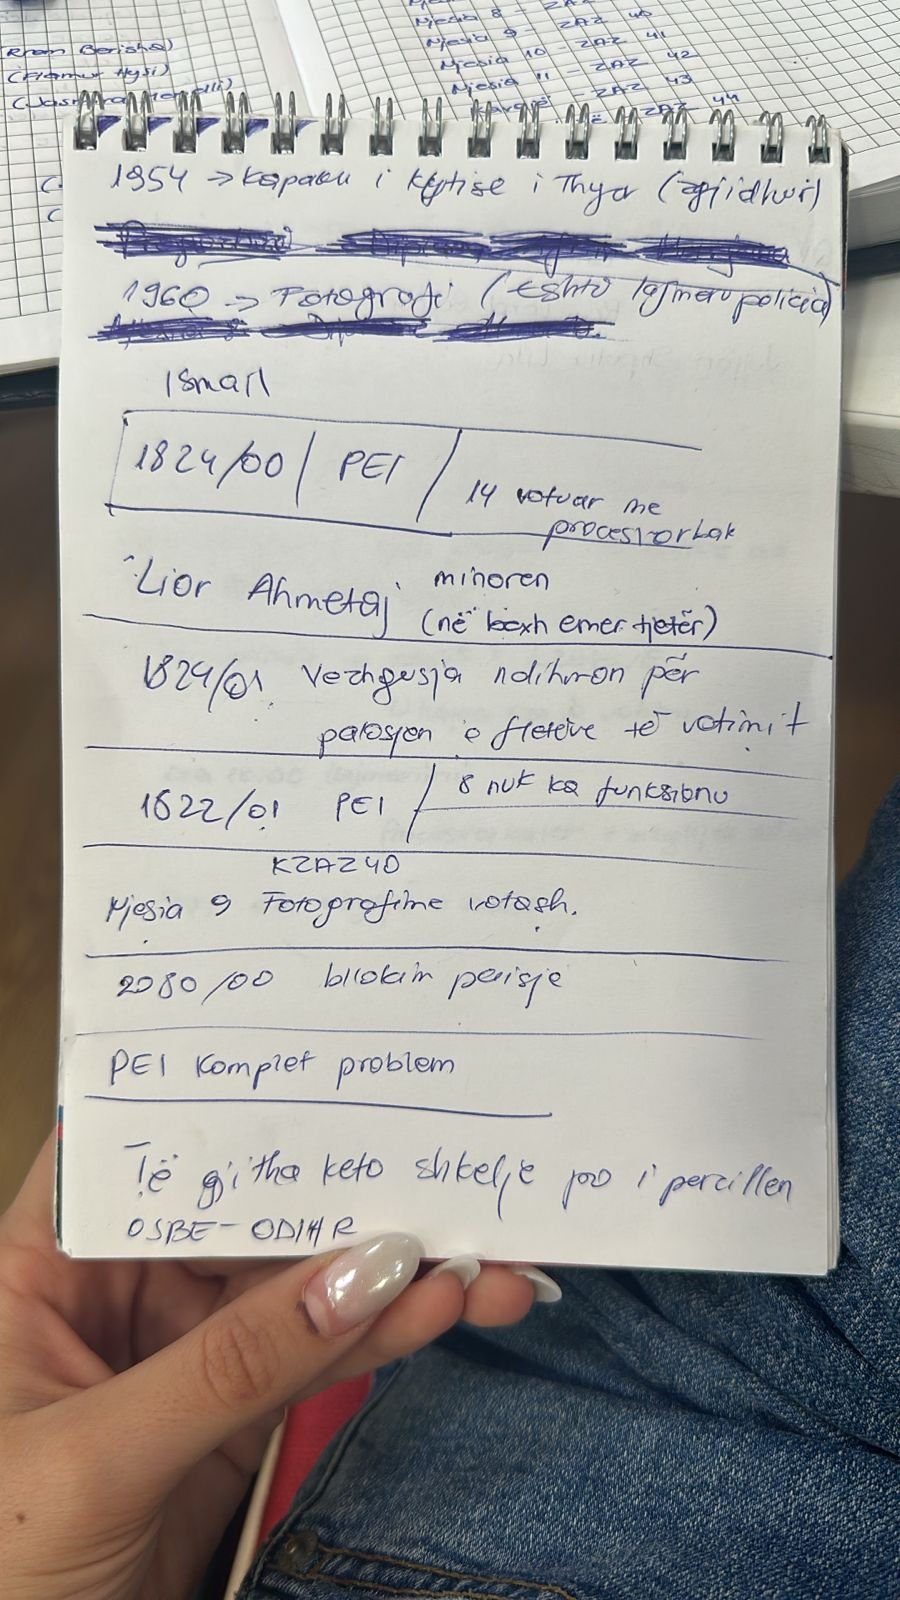 Rram Berisha)
(Flamur Hysi)
(Jasm
Njesia 8 - ZAZ
Njesia 9 - ZAZ 40
Njesia 10 - ZAZ 41
Njesia 11 - ZAZ 42
ZAZ 43
ZAZ 44
1954 → Kapaku i Kytise i Thyer (zgjidhur)
1960 → Fotografi (Eshtë lajmeru policia)
Ismail
1824/00 | PEI / 14 votuar me
procesverbak
Lior Ahmetaj minoren
(në boxh emer tjetër)
1824/01 Vezhguesja ndihmon për
palosjen e fletëve të votimit
1622/01 PEI / 8 nuk ka funksionu
KZAZ 40
Njesia 9 Fotografime votash.
2080/00 bllokim pajisje
PEI Komplet problem
Të gjitha keto shkelje po i percillen
OSBE - ODIHR